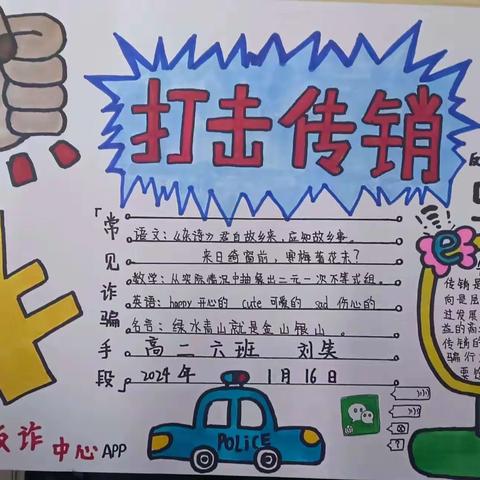 打击传销
「常见诈骗手段
语文：《杂诗》君自故乡来，应知故乡事。
来日绮窗前，寒梅著花未？
数学：从实际情况中抽象出二元一次不等式组。
英语：happy 开心的 cute 可爱的 sad 伤心的
名言：绿水青山就是金山银山。
高二六班 刘
2024年 1月16日
POLICE
反诈中心APP
e
传销是
向是层
过发展
益的
传销的
骗行